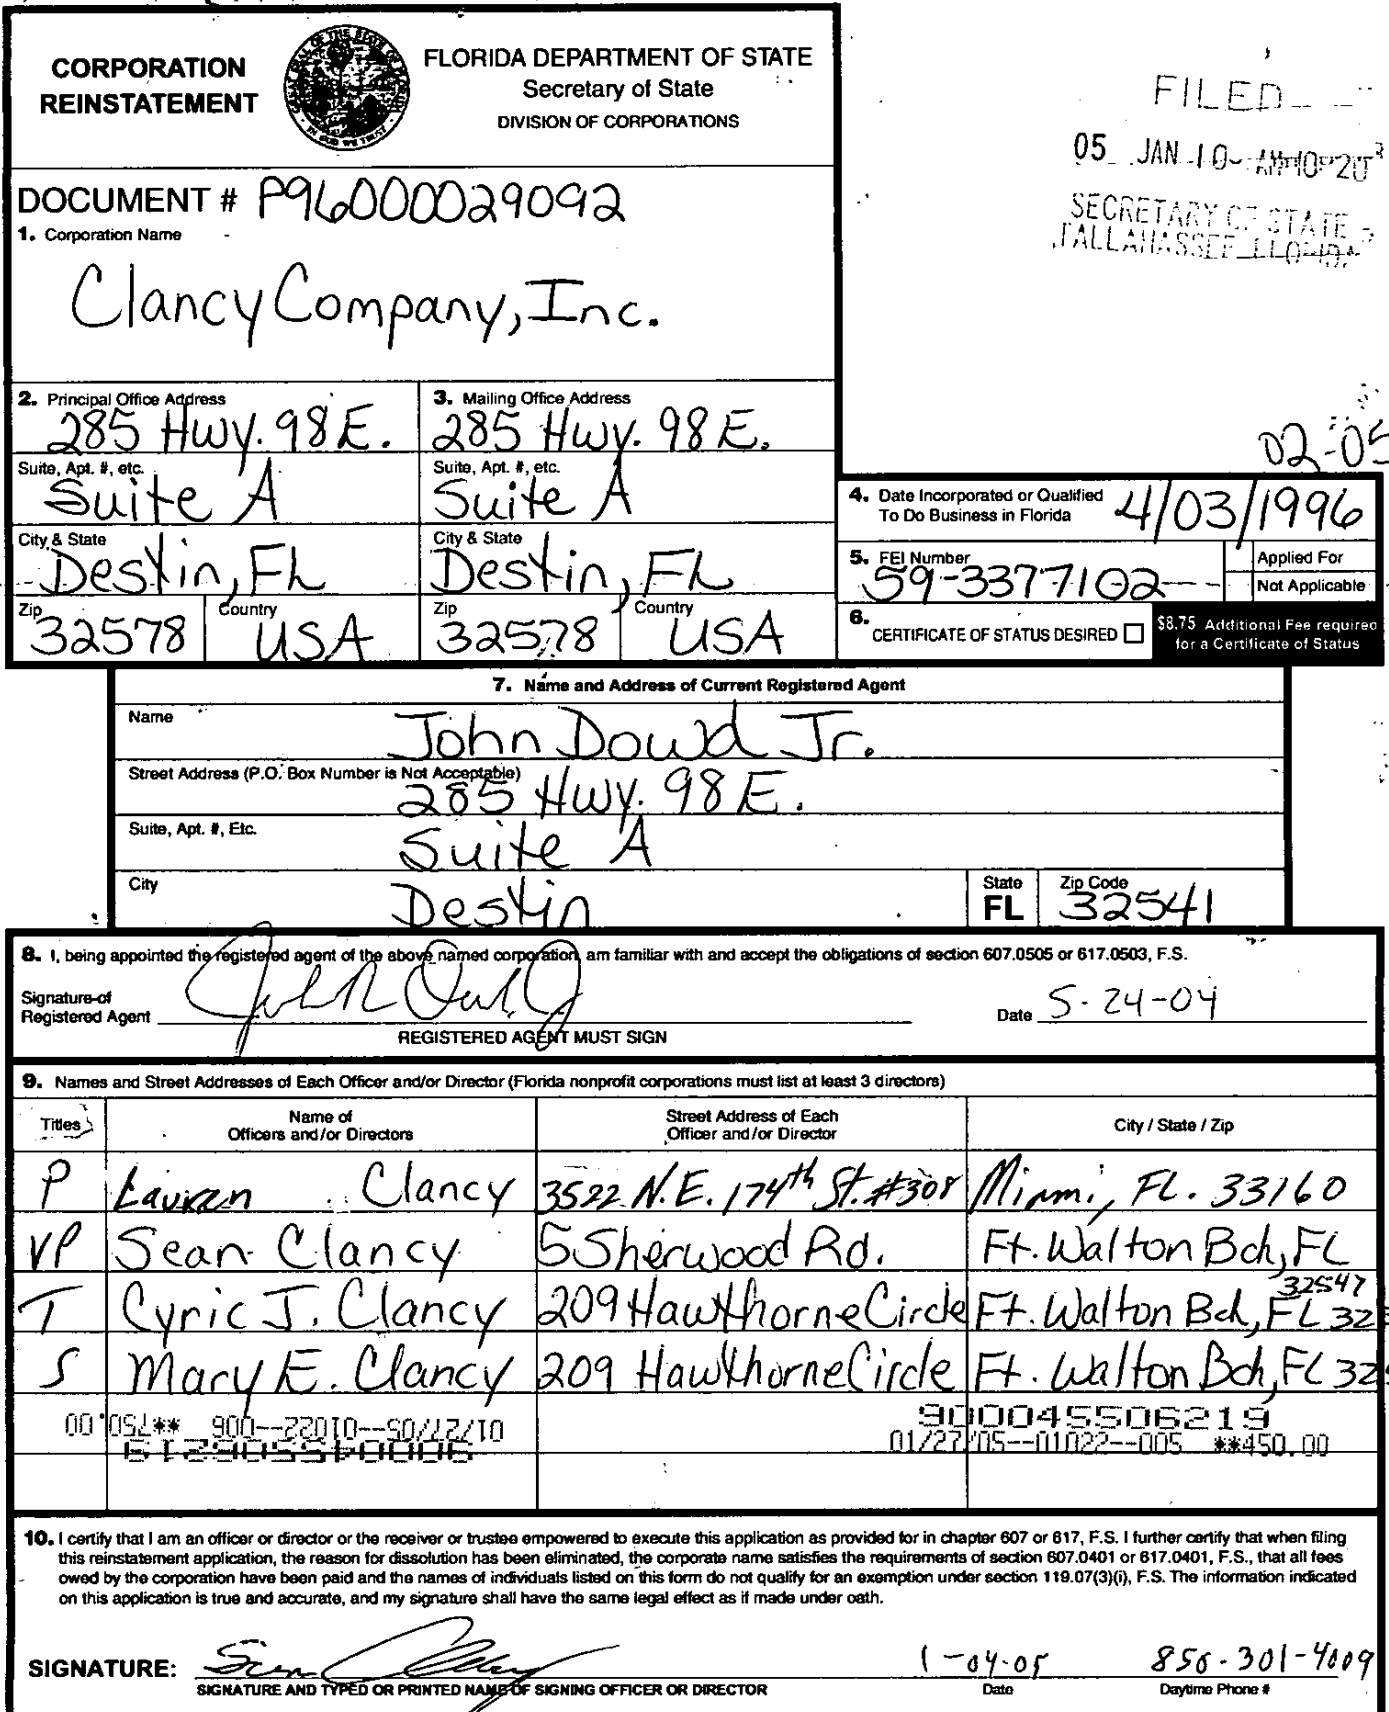 CORPORATION
REINSTATEMENT
FLORIDA DEPARTMENT OF STATE
Secretary of State
DIVISION OF CORPORATIONS
FILED
05 JAN 10 AM 10:20
SECRETARY OF STATE
TALLAHASSEE FLORIDA
DOCUMENT # P96000029092
1. Corporation Name
Clancy Company, Inc.
2. Principal Office Address
285 Hwy. 98 E.
Suite, Apt. #, etc.
Suite A
City & State
Destin, FL
Zip
32578
Country
USA
3. Mailing Office Address
285 Hwy. 98 E.
Suite, Apt. #, etc.
Suite A
City & State
Destin, FL
Zip
32578
Country
USA
02-05
4. Date Incorporated or Qualified
To Do Business in Florida
4/03/1996
5. FEI Number
59-3377102
Applied For
Not Applicable
6.
CERTIFICATE OF STATUS DESIRED
$8.75 Additional Fee required
for a Certificate of Status
7. Name and Address of Current Registered Agent
Name
John Dowd Jr.
Street Address (P.O. Box Number is Not Acceptable)
285 Hwy. 98 E.
Suite, Apt. #, Etc.
Suite A
City
Destin
State
FL
Zip Code
32541
8. I, being appointed the registered agent of the above named corporation, am familiar with and accept the obligations of section 607.0505 or 617.0503, F.S.
Signature of
Registered Agent
REGISTERED AGENT MUST SIGN
Date 5-24-04
9. Names and Street Addresses of Each Officer and/or Director (Florida nonprofit corporations must list at least 3 directors)
Titles
Name of
Officers and/or Directors
Street Address of Each
Officer and/or Director
City / State / Zip
P Lauren Clancy 3522 N.E. 174th St. #308 Miami, FL. 33160
VP Sean Clancy 5 Sherwood Rd. Ft. Walton Bch, FL
32547
T Cyric J. Clancy 209 Hawthorne Circle Ft. Walton Bch, FL 32
S Mary E. Clancy 209 Hawthorne Circle Ft. Walton Bch, FL 32
900045506219
01/27/05--01022--006 **750.00
900045506219
01/27/05--01022--005 **450.00
10. I certify that I am an officer or director or the receiver or trustee empowered to execute this application as provided for in chapter 607 or 617, F.S. I further certify that when filing
this reinstatement application, the reason for dissolution has been eliminated, the corporate name satisfies the requirements of section 607.0401 or 617.0401, F.S., that all fees
owed by the corporation have been paid and the names of individuals listed on this form do not qualify for an exemption under section 119.07(3)(i), F.S. The information indicated
on this application is true and accurate, and my signature shall have the same legal effect as if made under oath.
SIGNATURE: Sean Clancy
1-04-05
850-301-4009
SIGNATURE AND TYPED OR PRINTED NAME OF SIGNING OFFICER OR DIRECTOR
Date
Daytime Phone #